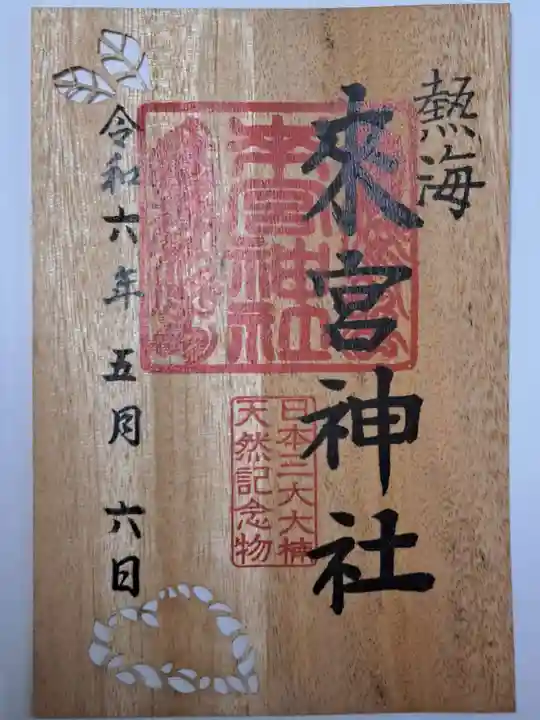 熱海
來宮神社
來宮神社
日本二大大楠
天然記念物
令和六年五月六日